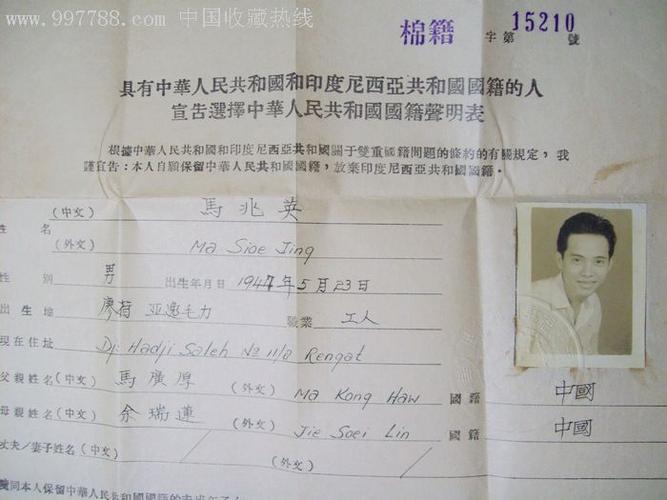 www.997788.com 中国收藏热线
棉籍 字第 15210 號
具有中華人民共和國和印度尼西亞共和國國籍的人
宣告選擇中華人民共和國國籍聲明表
根據中華人民共和國和印度尼西亞共和國關于雙重國籍問題的條約的有關規定，我
謹宣告：本人自願保留中華人民共和國國籍，放棄印度尼西亞共和國國籍。
姓名 (中文) 馬兆英
(外文) Ma Sioe Jing
性別 男 出生年月日 1947年5月23日
出生地 廖省 職業 工人
現在住址 Dj: Hadji Saleh No 11/8 Rengat
父親姓名(中文) 馬廣厚 (外文) Ma Kong Haw 國籍 中國
母親姓名(中文) 余瑞蓮 (外文) Jie Soei Lin 國籍 中國
丈夫/妻子姓名(中文) / (外文) /
同本人保留中華人民共和國國籍的